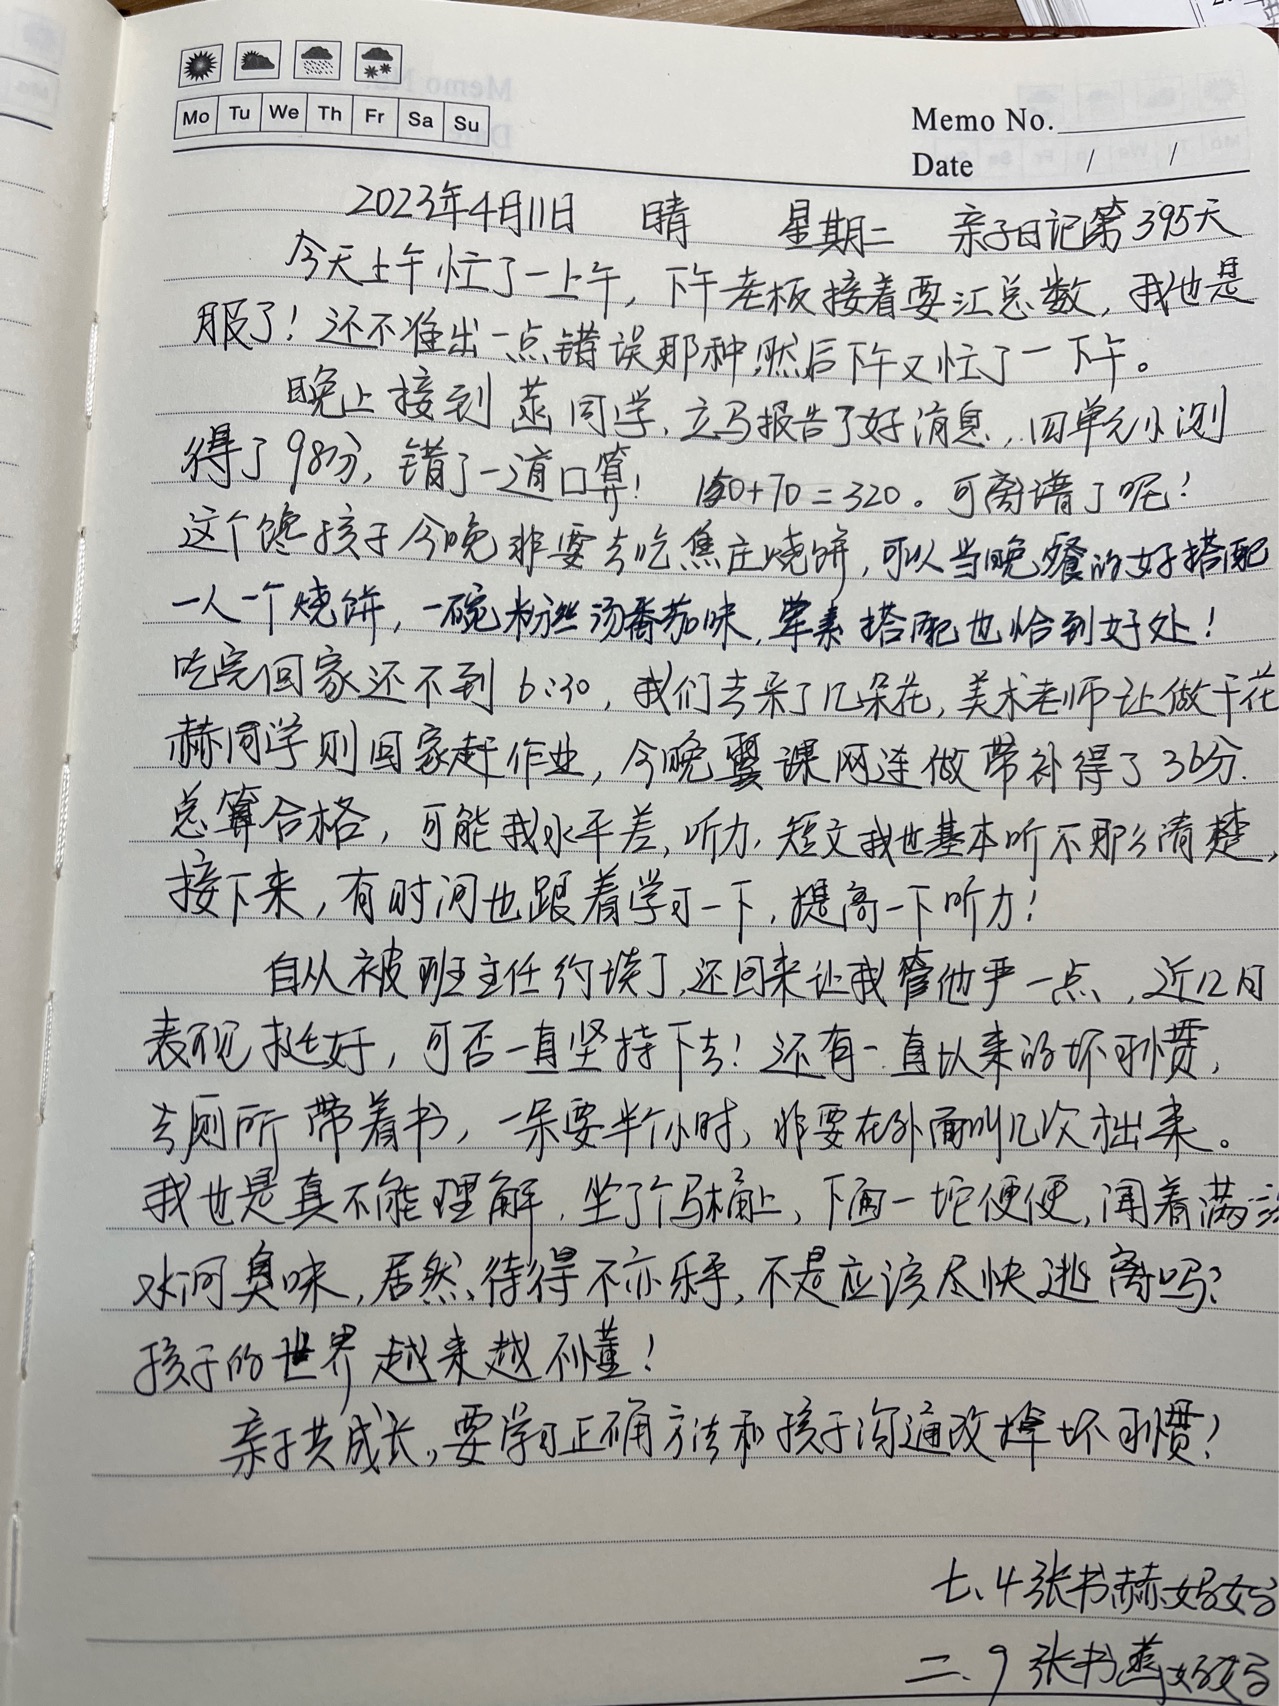 Mo Tu We Th Fr Sa Su
Memo No.
Date / /
2023年4月11日 晴 星期二 亲子日记第395天
今天上午忙了一上午，下午老板接着要汇总数，我也是
服了！还不准出一点错误那种，然后下午又忙了一下午。
晚上接到燕同学，立马报告了好消息，四单元小测
得了98分，错了一道口算！ 150+70=320。可离谱了呢！
这个馋孩子今晚非要去吃焦庄烧饼，可以当晚餐的好搭配
一人一个烧饼，一碗粉丝汤番茄味，荤素搭配也恰到好处！
吃完回家还不到6:30，我们去采了几朵花，美术老师让做干花
赫同学则回家赶作业，今晚翼课网连做带补得了36分.
总算合格，可能我水平差，听力，短文我也基本听不那么清楚，
接下来，有时间也跟着学习一下，提高一下听力！
自从被班主任约谈了，还回来让我管他严一点，近12月
表现挺好，可否一直坚持下去！还有一直以来的坏习惯，
去厕所带着书，一呆要半个小时，非要在外面叫几次才出来。
我也是真不能理解，坐了个马桶上，下面一坨便便，闻着满满
水河臭味，居然待得不亦乐乎，不是应该尽快逃离吗？
孩子的世界越来越不懂！
亲子共成长，要学习正确方法和孩子沟通改掉坏习惯？
七、4张书赫妈妈
二、9张书燕妈妈